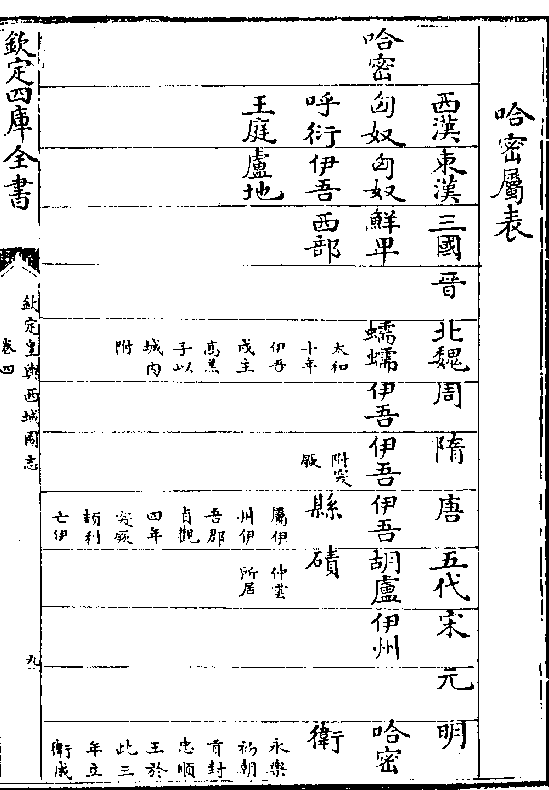 哈密屬表
哈密
西漢
匈奴
呼衍
王庭
東漢
匈奴
伊吾
盧地
三國
鮮卑
西部
晉
北魏
蠕蠕
太和
十年
伊吾
戍主
高羔
子以
城内
附
周
伊吾
隋
伊吾
附突
厥
唐
伊吾
縣
屬伊
州伊
吾郡
貞觀
四年
突厥
頡利
亡伊
五代
胡盧
磧
仲雲
所居
宋
伊州
元
明
哈密
衛
永樂
初朝
貢封
忠順
王於
此三
年立
衛成
欽定四庫全書
欽定皇輿西域圖志
卷四
九